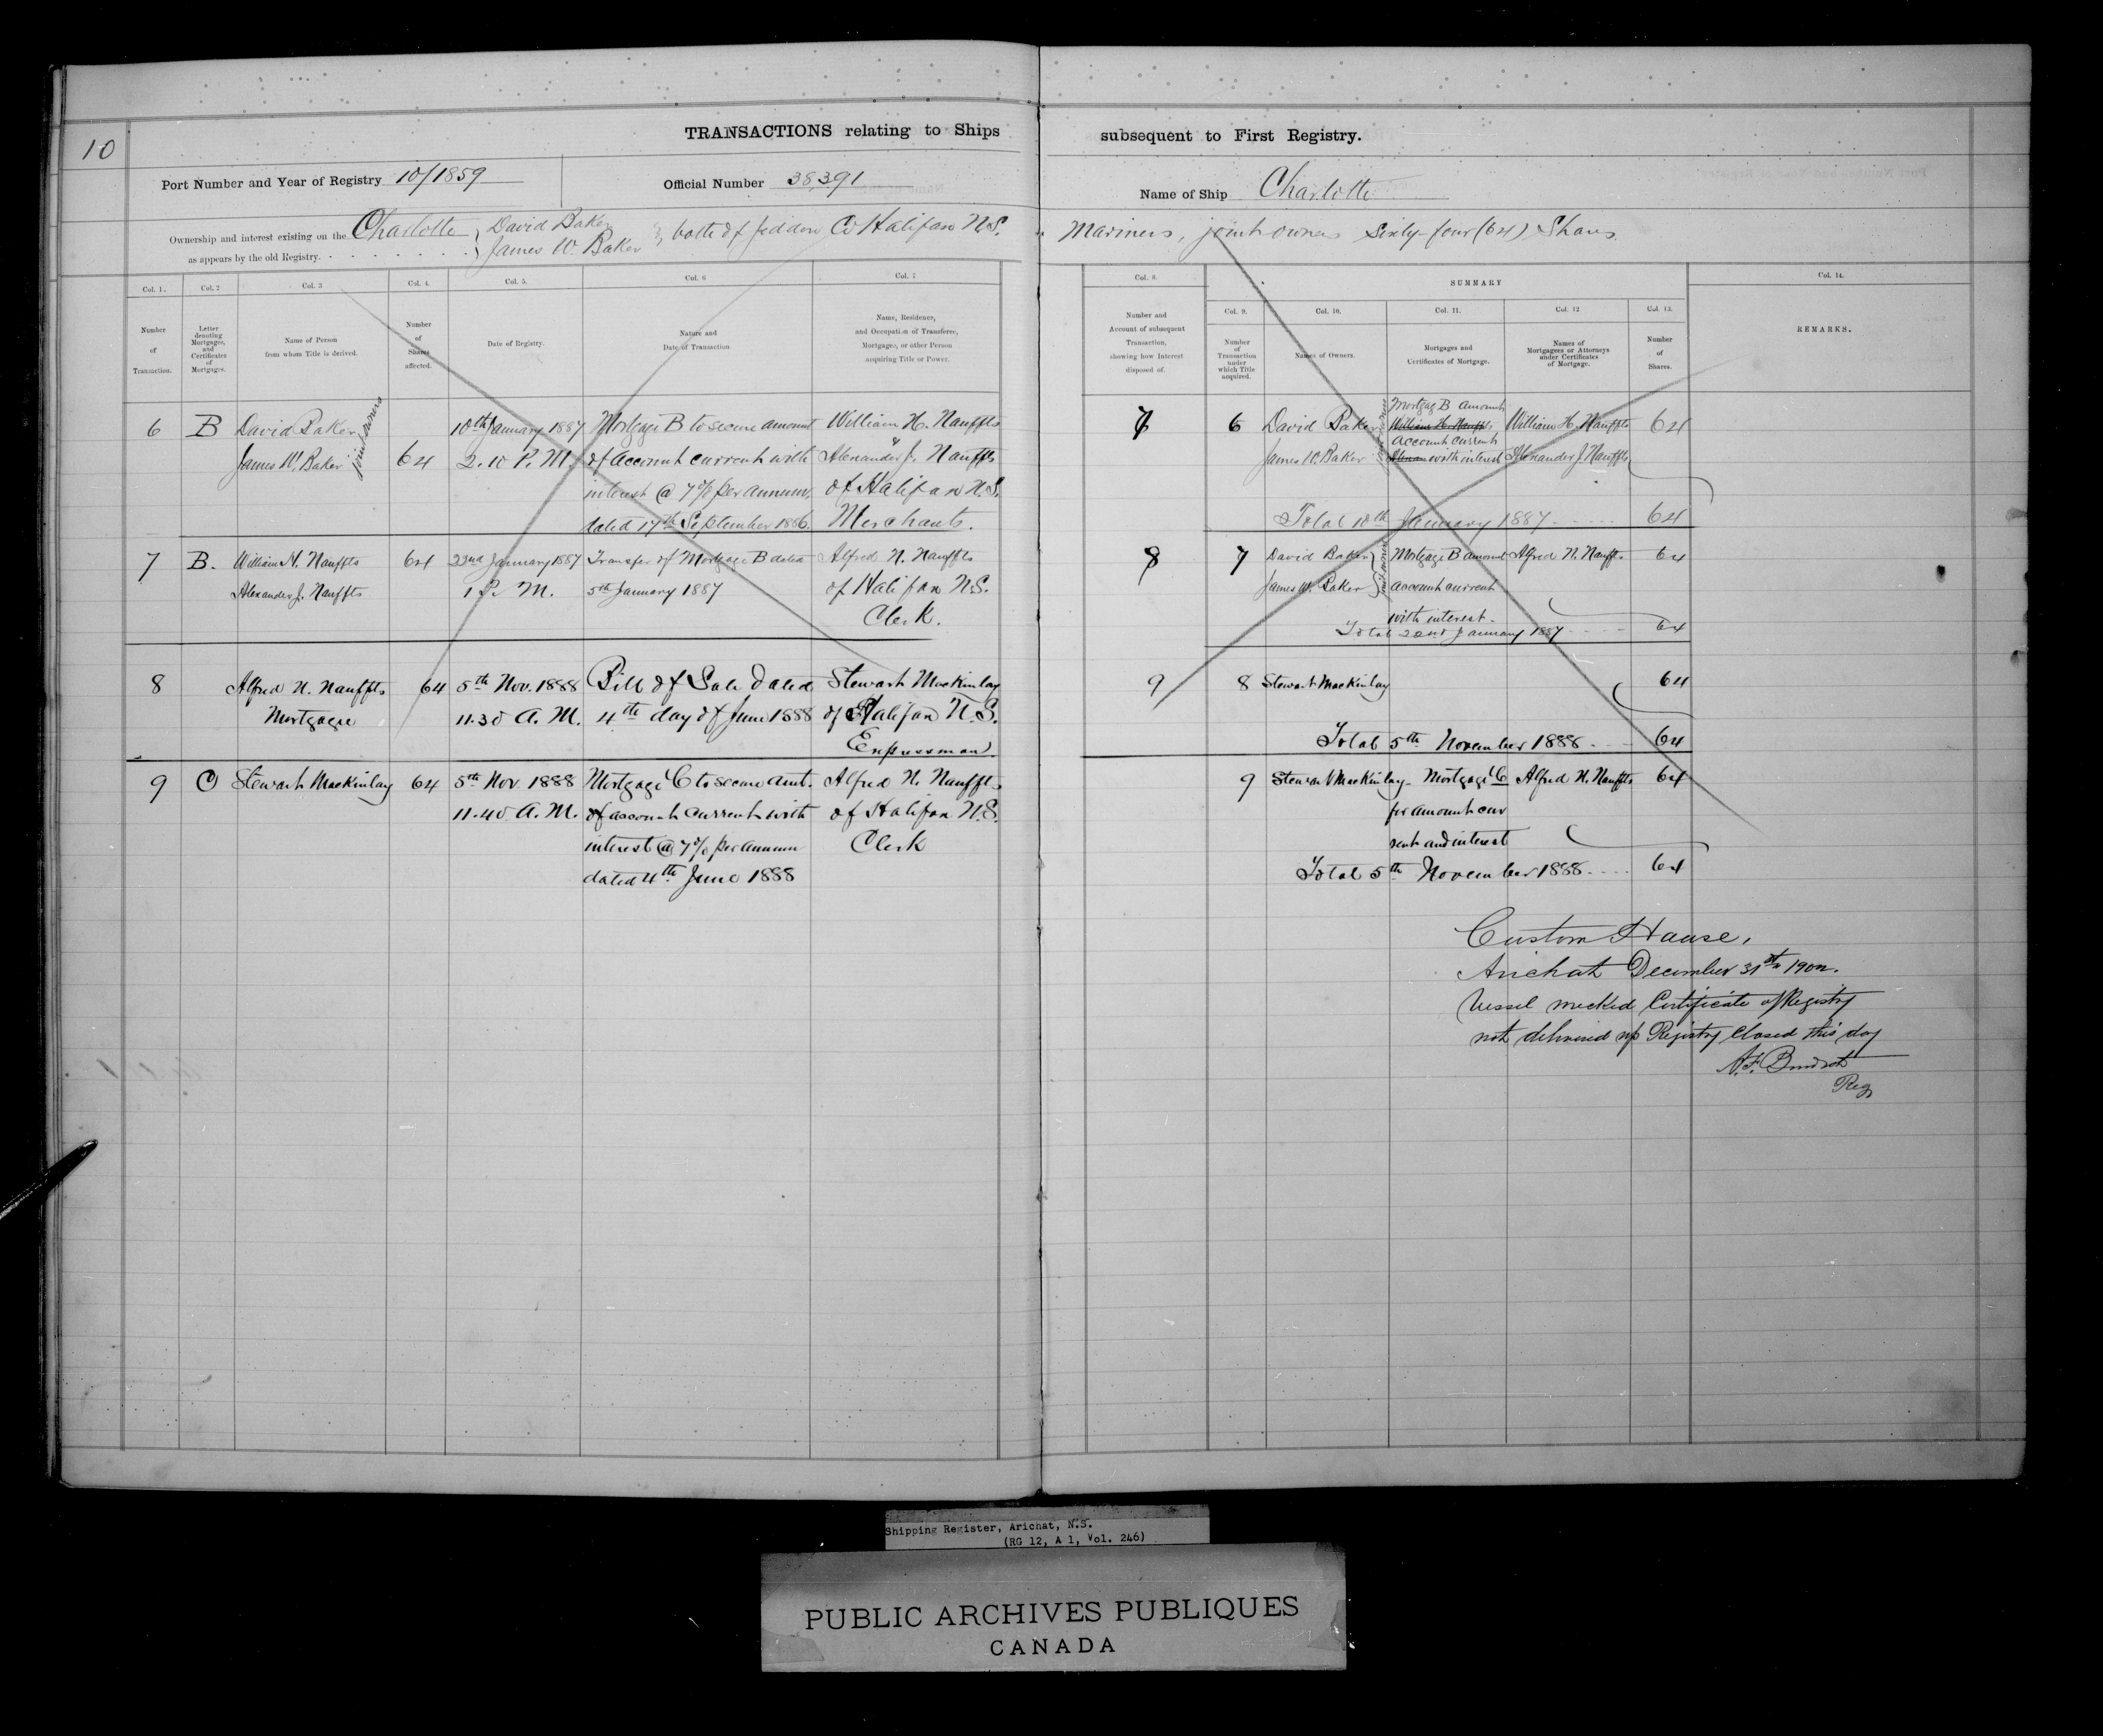 10
TRANSACTIONS relating to Ships subsequent to First Registry.
Port Number and Year of Registry 10/1859 Official Number 38,391 Name of Ship Charlotte
Ownership and interest existing on the Charlotte } David Baker
as appears by the old Registry. James W. Baker } both of Jeddore Co Halifax N.S. Mariners, joint owners Sixty-four (64) Shares.
Col. 1. Col. 2 Col. 3 Col. 4. Col. 5. Col. 6 Col. 7
Number of Transaction.
Letter denoting Mortgages, and Certificates of Mortgages.
Name of Person from whom Title is derived.
Number of Shares affected.
Date of Registry.
Nature and Date of Transaction
Name, Residence, and Occupation of Transferee, Mortgagee, or other Person acquiring Title or Power.
6 B David Baker 10th January 1887 Mortgage B to secure amount William H. Nauffts
James W. Baker joint owners 64 2.10 P.M. of account current with Alexander J. Nauffts
interest @ 7% per annum. of Halifax N.S.
dated 17th September 1886 Merchants.
7 B. William H. Nauffts 64 22nd January 1887 Transfer of Mortgage B dated Alfred N. Nauffts
Alexander J. Nauffts 1 P. M. 5th January 1887 of Halifax N.S.
Clerk.
8 Alfred N. Nauffts 64 5th Nov. 1888 Bill of Sale dated Stewart Mackinlay
Mortgagee 11.30 A.M. 4th day of June 1888 of Halifax N.S.
Expressman
9 C Stewart Mackinlay 64 5th Nov. 1888 Mortgage C to secure amt. Alfred N. Nauffts
11.40 A.M. of account current with of Halifax N.S.
interest @ 7% per annum Clerk
dated 4th June 1888
Col. 8. SUMMARY Col. 14.
Col. 9. Col. 10. Col. 11. Col. 12 Col. 13.
Number and Account of subsequent Transaction, showing how Interest disposed of.
Number of Transaction under which Title acquired.
Names of Owners.
Mortgages and Certificates of Mortgage.
Names of Mortgagees or Attorneys under Certificates of Mortgage.
Number of Shares.
REMARKS.
Mortgage B amount
7 6 David Baker William H. Nauffts William H. Nauffts 64
joint owners account current
James W. Baker with interest Alexander J. Nauffts
Total 10th January 1887 64
8 7 David Baker Mortgage B amount Alfred N. Nauffts 64
James W. Baker joint owners account current
with interest.
Total 22nd January 1887 64
9 8 Stewart Mackinlay 64
Total 5th November 1888 64
9 Stewart Mackinlay Mortgage C Alfred N. Nauffts 64
for amount cur
rent and interest
Total 5th November 1888 64
Custom House,
Arichat December 31st
Vessel wrecked Certificate of Registry
not delivered up Registry Closed this day
Reg
Shipping Register, Arichat, N.S.
(RG 12, A 1, Vol. 246)
PUBLIC ARCHIVES PUBLIQUES
CANADA